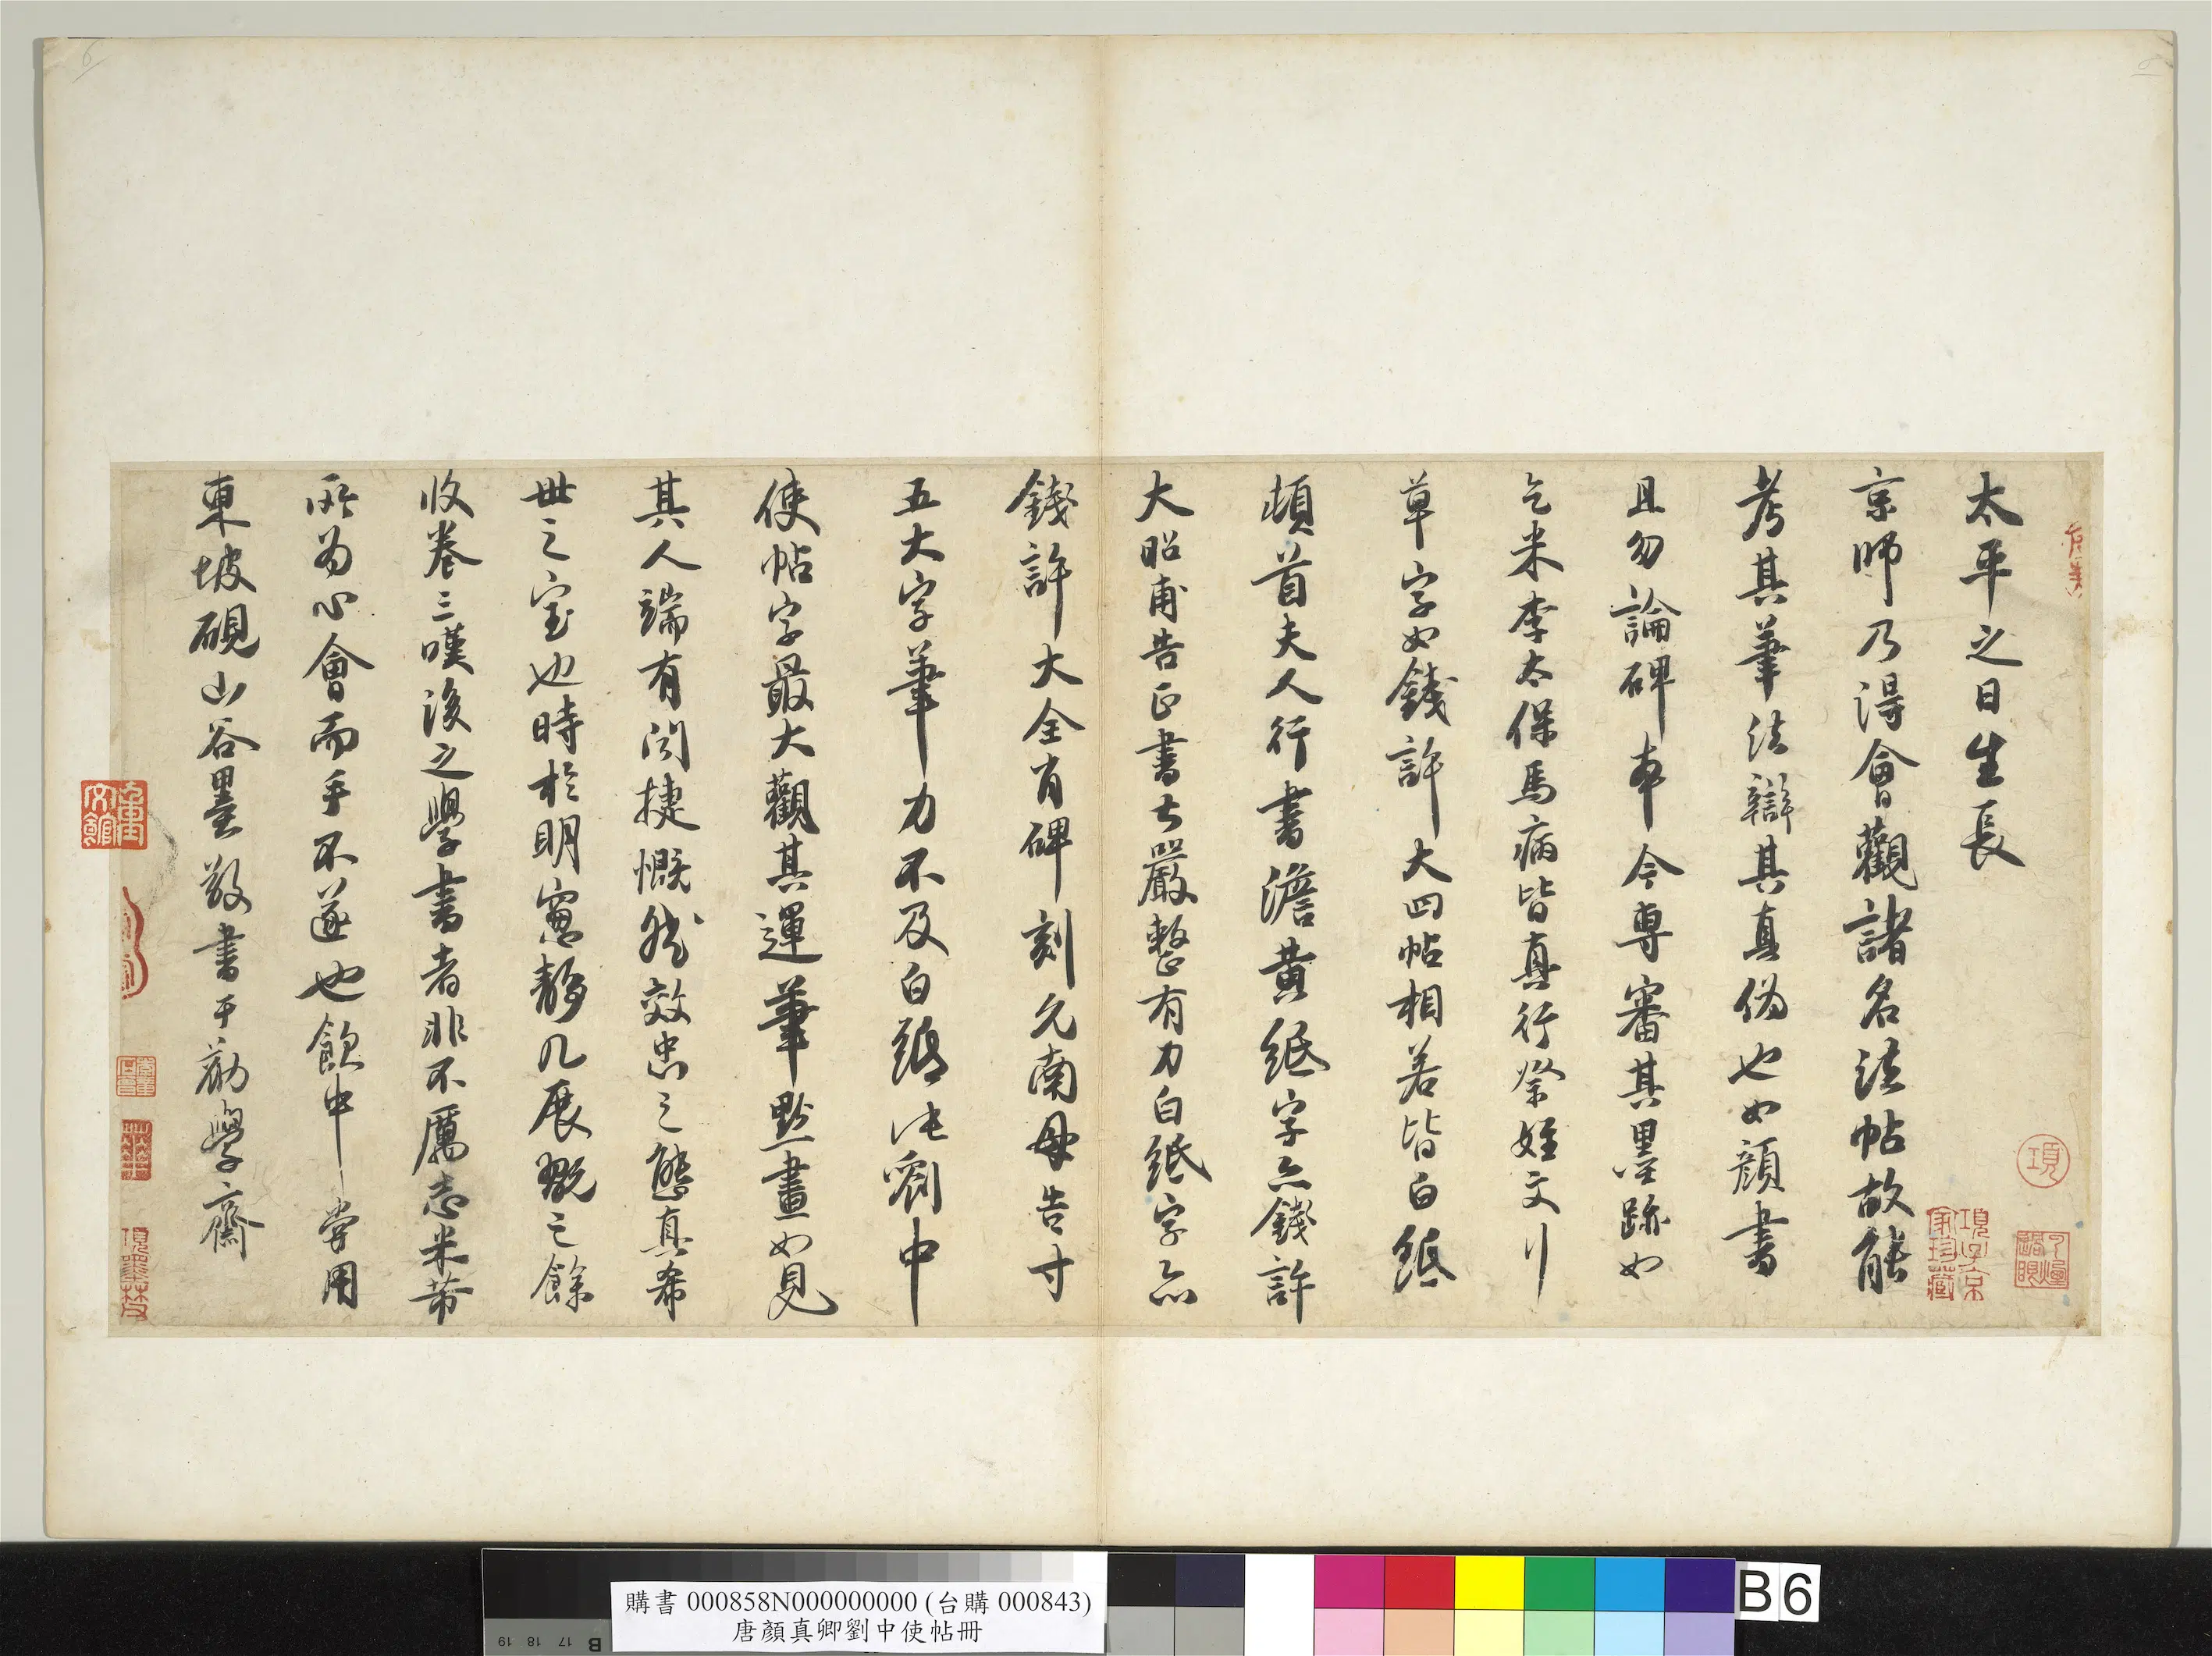 太平之日生長
京師乃得會觀諸名法帖故能
考其筆法辯其真偽也如顏書
且勿論碑本今專審其墨跡如
乞米李太保馬病皆真行祭姪文行
草字如錢許大四帖相若皆白紙
頓首夫人行書澹黃紙字亦錢許
大昭甫告正書古嚴整有力白紙字亦
錢許大全肖碑刻允南母告寸
五大字筆力不及白紙此劉中
使帖字最大觀其運筆點畫如見
其人端有閑捷慨然效忠之態真希
世之寶也時於明窗靜几展翫之餘
收卷三嘆後之學書者非不厲志米芾
所為心會而手不逐也飲中嘗用
東坡硯山谷墨敬書于勸學齋
項
項子京家珍藏
項墨林父
購書 000858N000000000 (台購 000843)
唐顏真卿劉中使帖冊
B6
B 17 18 19